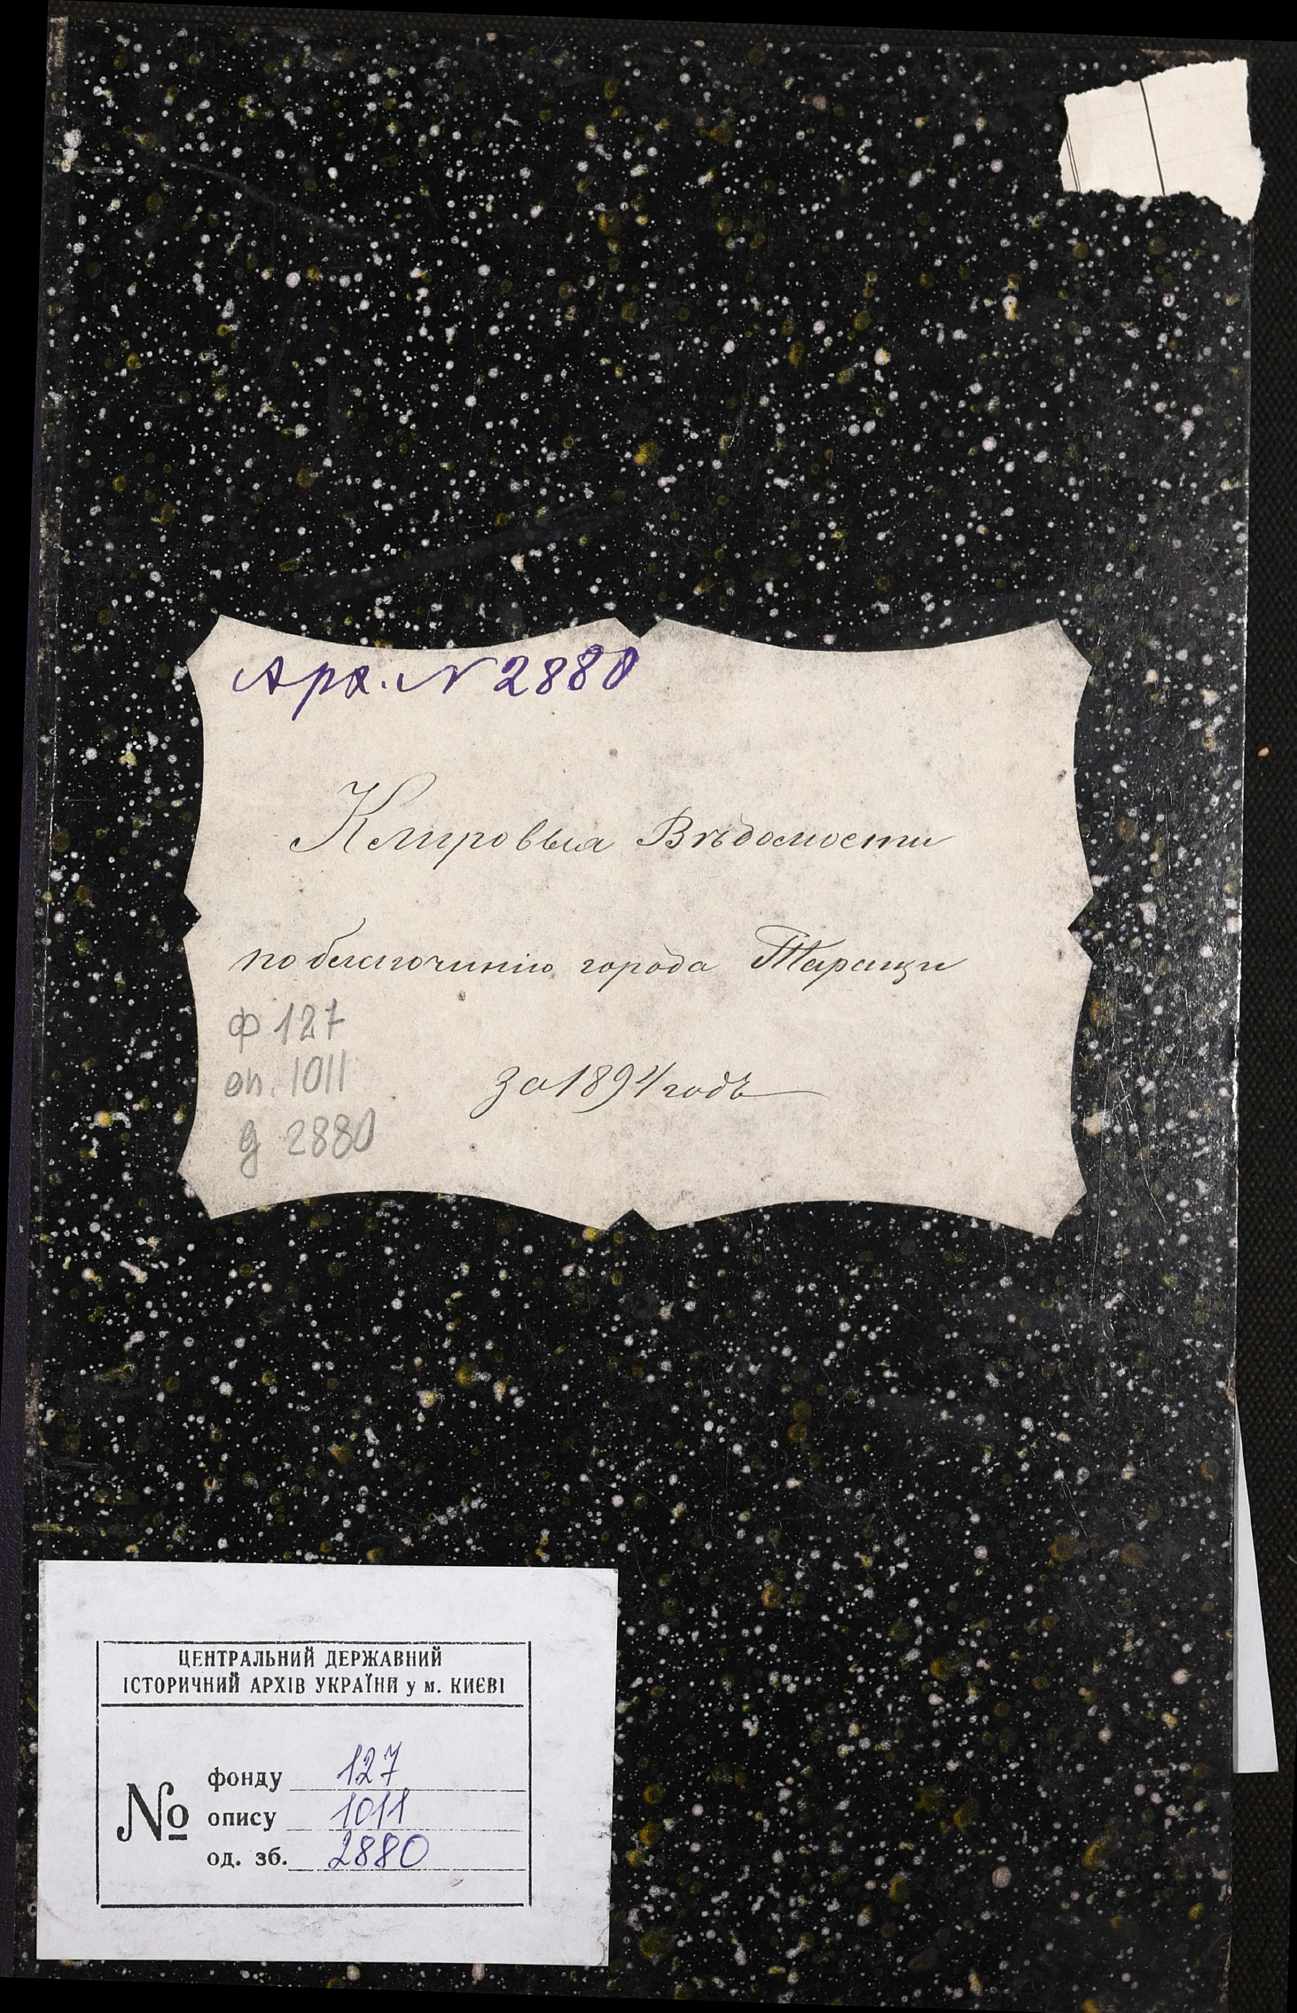 Арх. N 2880
Клировыя Вѣдомости
по благочинію города Таращи
за 1894 годъ
ф 127
оп. 1011
д 2880
ЦЕНТРАЛЬНИЙ ДЕРЖАВНИЙ
ІСТОРИЧНИЙ АРХІВ УКРАЇНИ у м. КИЄВІ
№
фонду 127
опису 1011
од. зб. 2880